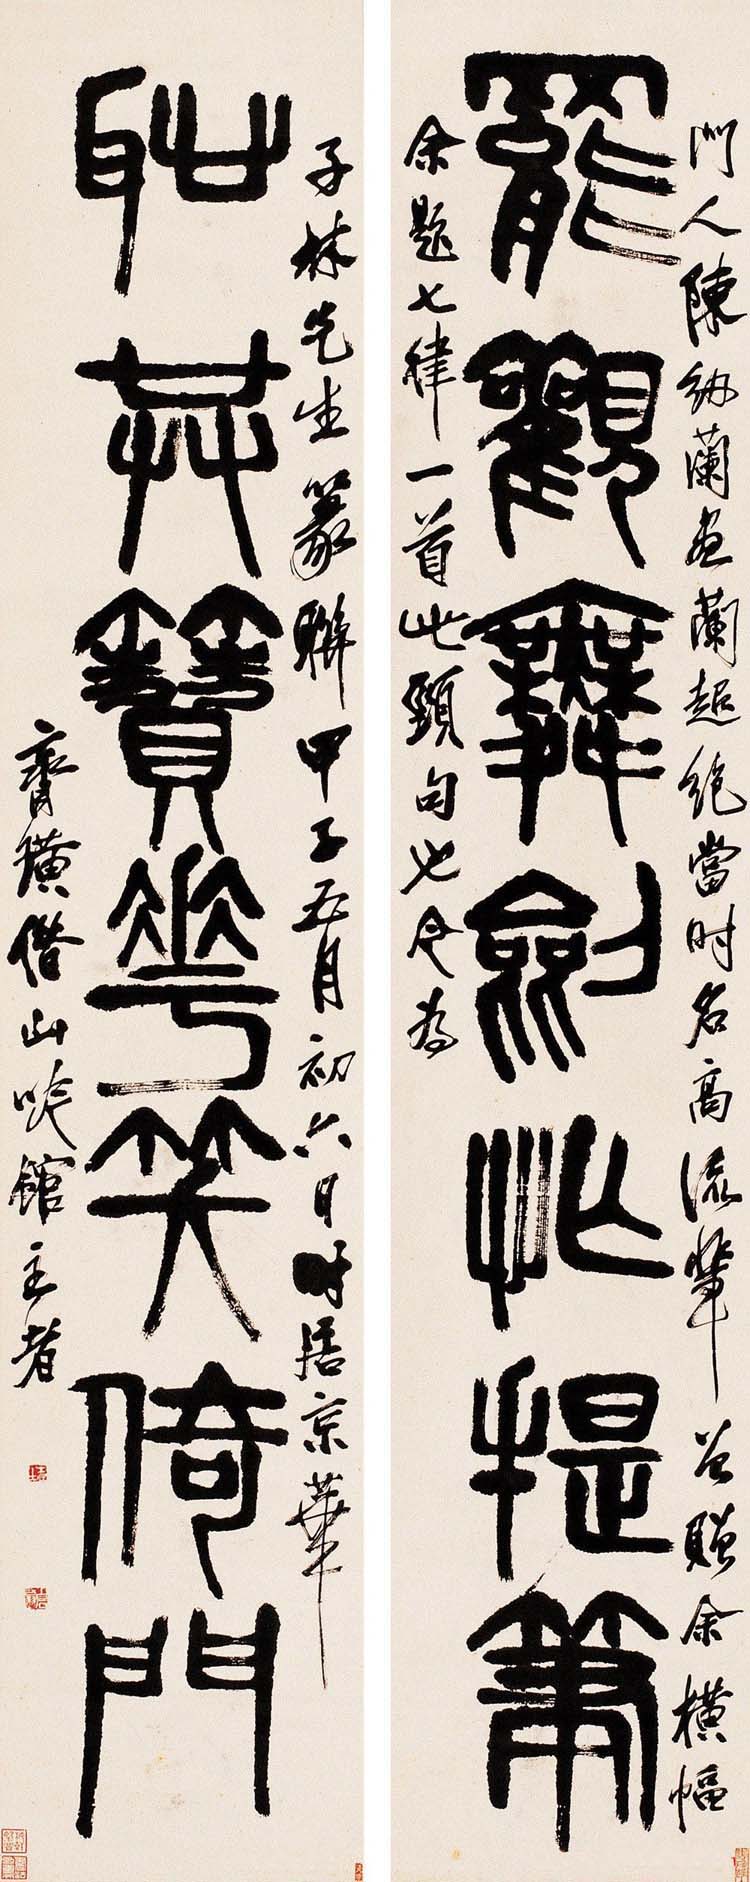 門人陳紉蘭畫蘭超絕當时名高流輩曾贈余橫幅
罷觀舞劍忙提筆
余題七律一首此頸句也今為
子林先生篆聯甲子五月初六日时居京華
耻共簪花笑倚門
齊璜借山吟館主者